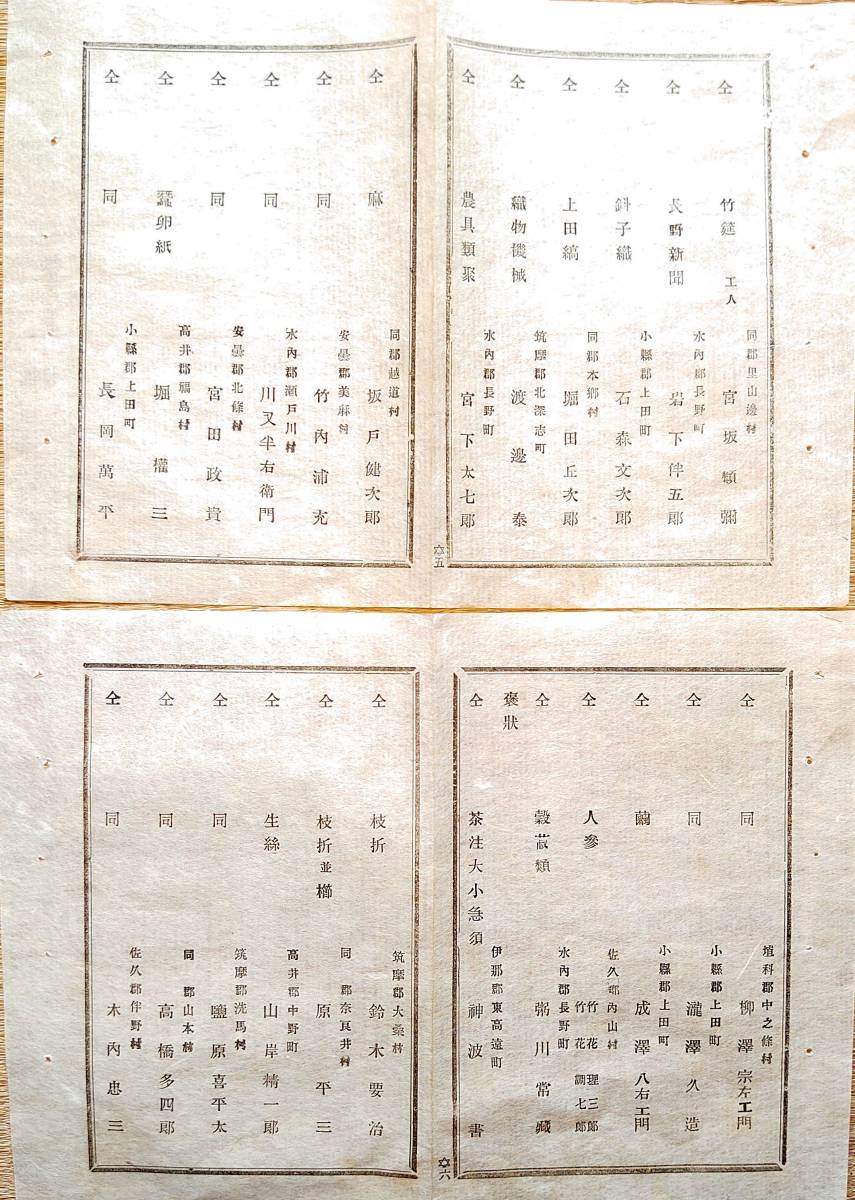 仝 竹筵 工人 同郡里山邊村 宮坂順彌
仝 長野新聞 水內郡長野町 岩下伴五郞
仝 斜子織 小縣郡上田町 石森文次郞
仝 上田縞 同郡本鄉村 堀田丘次郞
仝 織物機械 筑摩郡北深志町 渡邊泰
仝 農具類聚 水內郡長野町 宮下太七郞
五
仝 麻 同郡越道村 坂戶健次郞
仝 同 安曇郡美麻村 竹內浦充
仝 同 水內郡瀨戶川村 川又半右衛門
仝 同 安曇郡北條村 宮田政貴
仝 蠶卵紙 高井郡福島村 堀權三
仝 同 小縣郡上田町 長岡萬平
仝 同 埴科郡中之條村 柳澤宗左エ門
仝 同 小縣郡上田町 瀧澤久造
仝 繭 小縣郡上田町 成澤八右エ門
仝 人參 佐久郡內山村 竹花理三郞 竹花調七郞
仝 穀菽類 水內郡長野町 粥川常藏
褒狀
仝 茶注大小急須 伊那郡東高遠町 神波書
六
仝 枝折 筑摩郡大桑村 鈴木要治
仝 枝折並櫛 同郡奈良井村 原平三
仝 生絲 高井郡中野町 山岸精一郞
仝 同 筑摩郡洗馬村 鹽原喜平太
仝 同 同郡山本村 高橋多四郞
仝 同 佐久郡伴野村 木內忠三